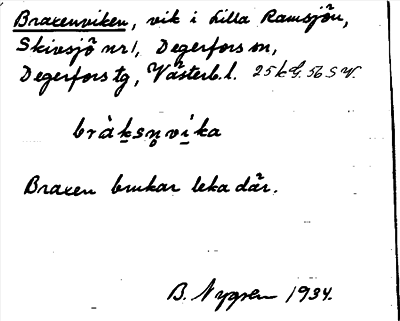 Braxenviken, vik i Lilla Ramsjön,
Skivsjö nr 1, Degerfors sn,
Degerfors tg, Västerb. l. 25 kG. 56 S W.
bràksn̥vika
Braxen brukar leka där.
B. Nygren 1934.